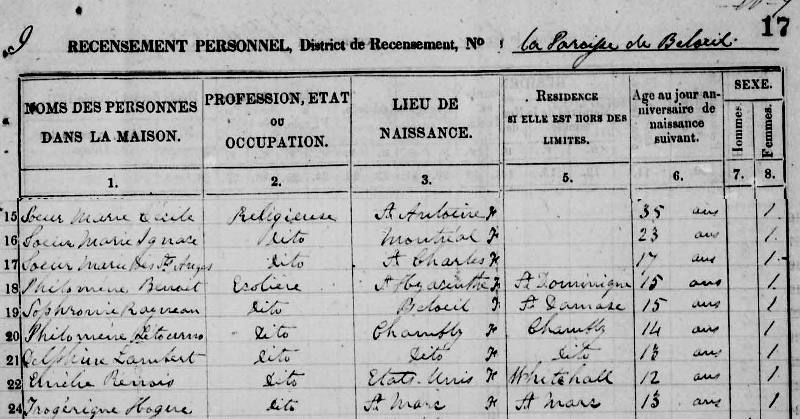 17
RECENSEMENT PERSONNEL, District de Recensement, No la Paroisse de Beloeil.
NOMS DES PERSONNES DANS LA MAISON. PROFESSION, ETAT OU OCCUPATION. LIEU DE NAISSANCE. RESIDENCE SI ELLE EST HORS DES LIMITES. Age au jour anniversaire de naissance suivant. SEXE. Hommes. Femmes.
1. 2. 3. 5. 6. 7. 8.
15 Soeur Marie Cécile Religieuse St Antoine F 35 ans 1
16 Soeur Marie Ignace dito Montréal F 23 ans 1
17 Soeur Marie des Sts Anges dito St Charles F 17 ans 1
18 Philomene Benoit Ecolière St Hyacinthe F St Dominique 15 ans 1
19 Sophronie dito Beloeil F St Damase 15 ans 1
20 Philomene Letourno dito Chambly F Chambly 14 ans 1
21 Delphine Lambert dito dito F dito 13 ans 1
22 Emélie dito Etats-Unis F Whitehall 12 ans 1
24 dito St Marc F St Marc 13 ans 1